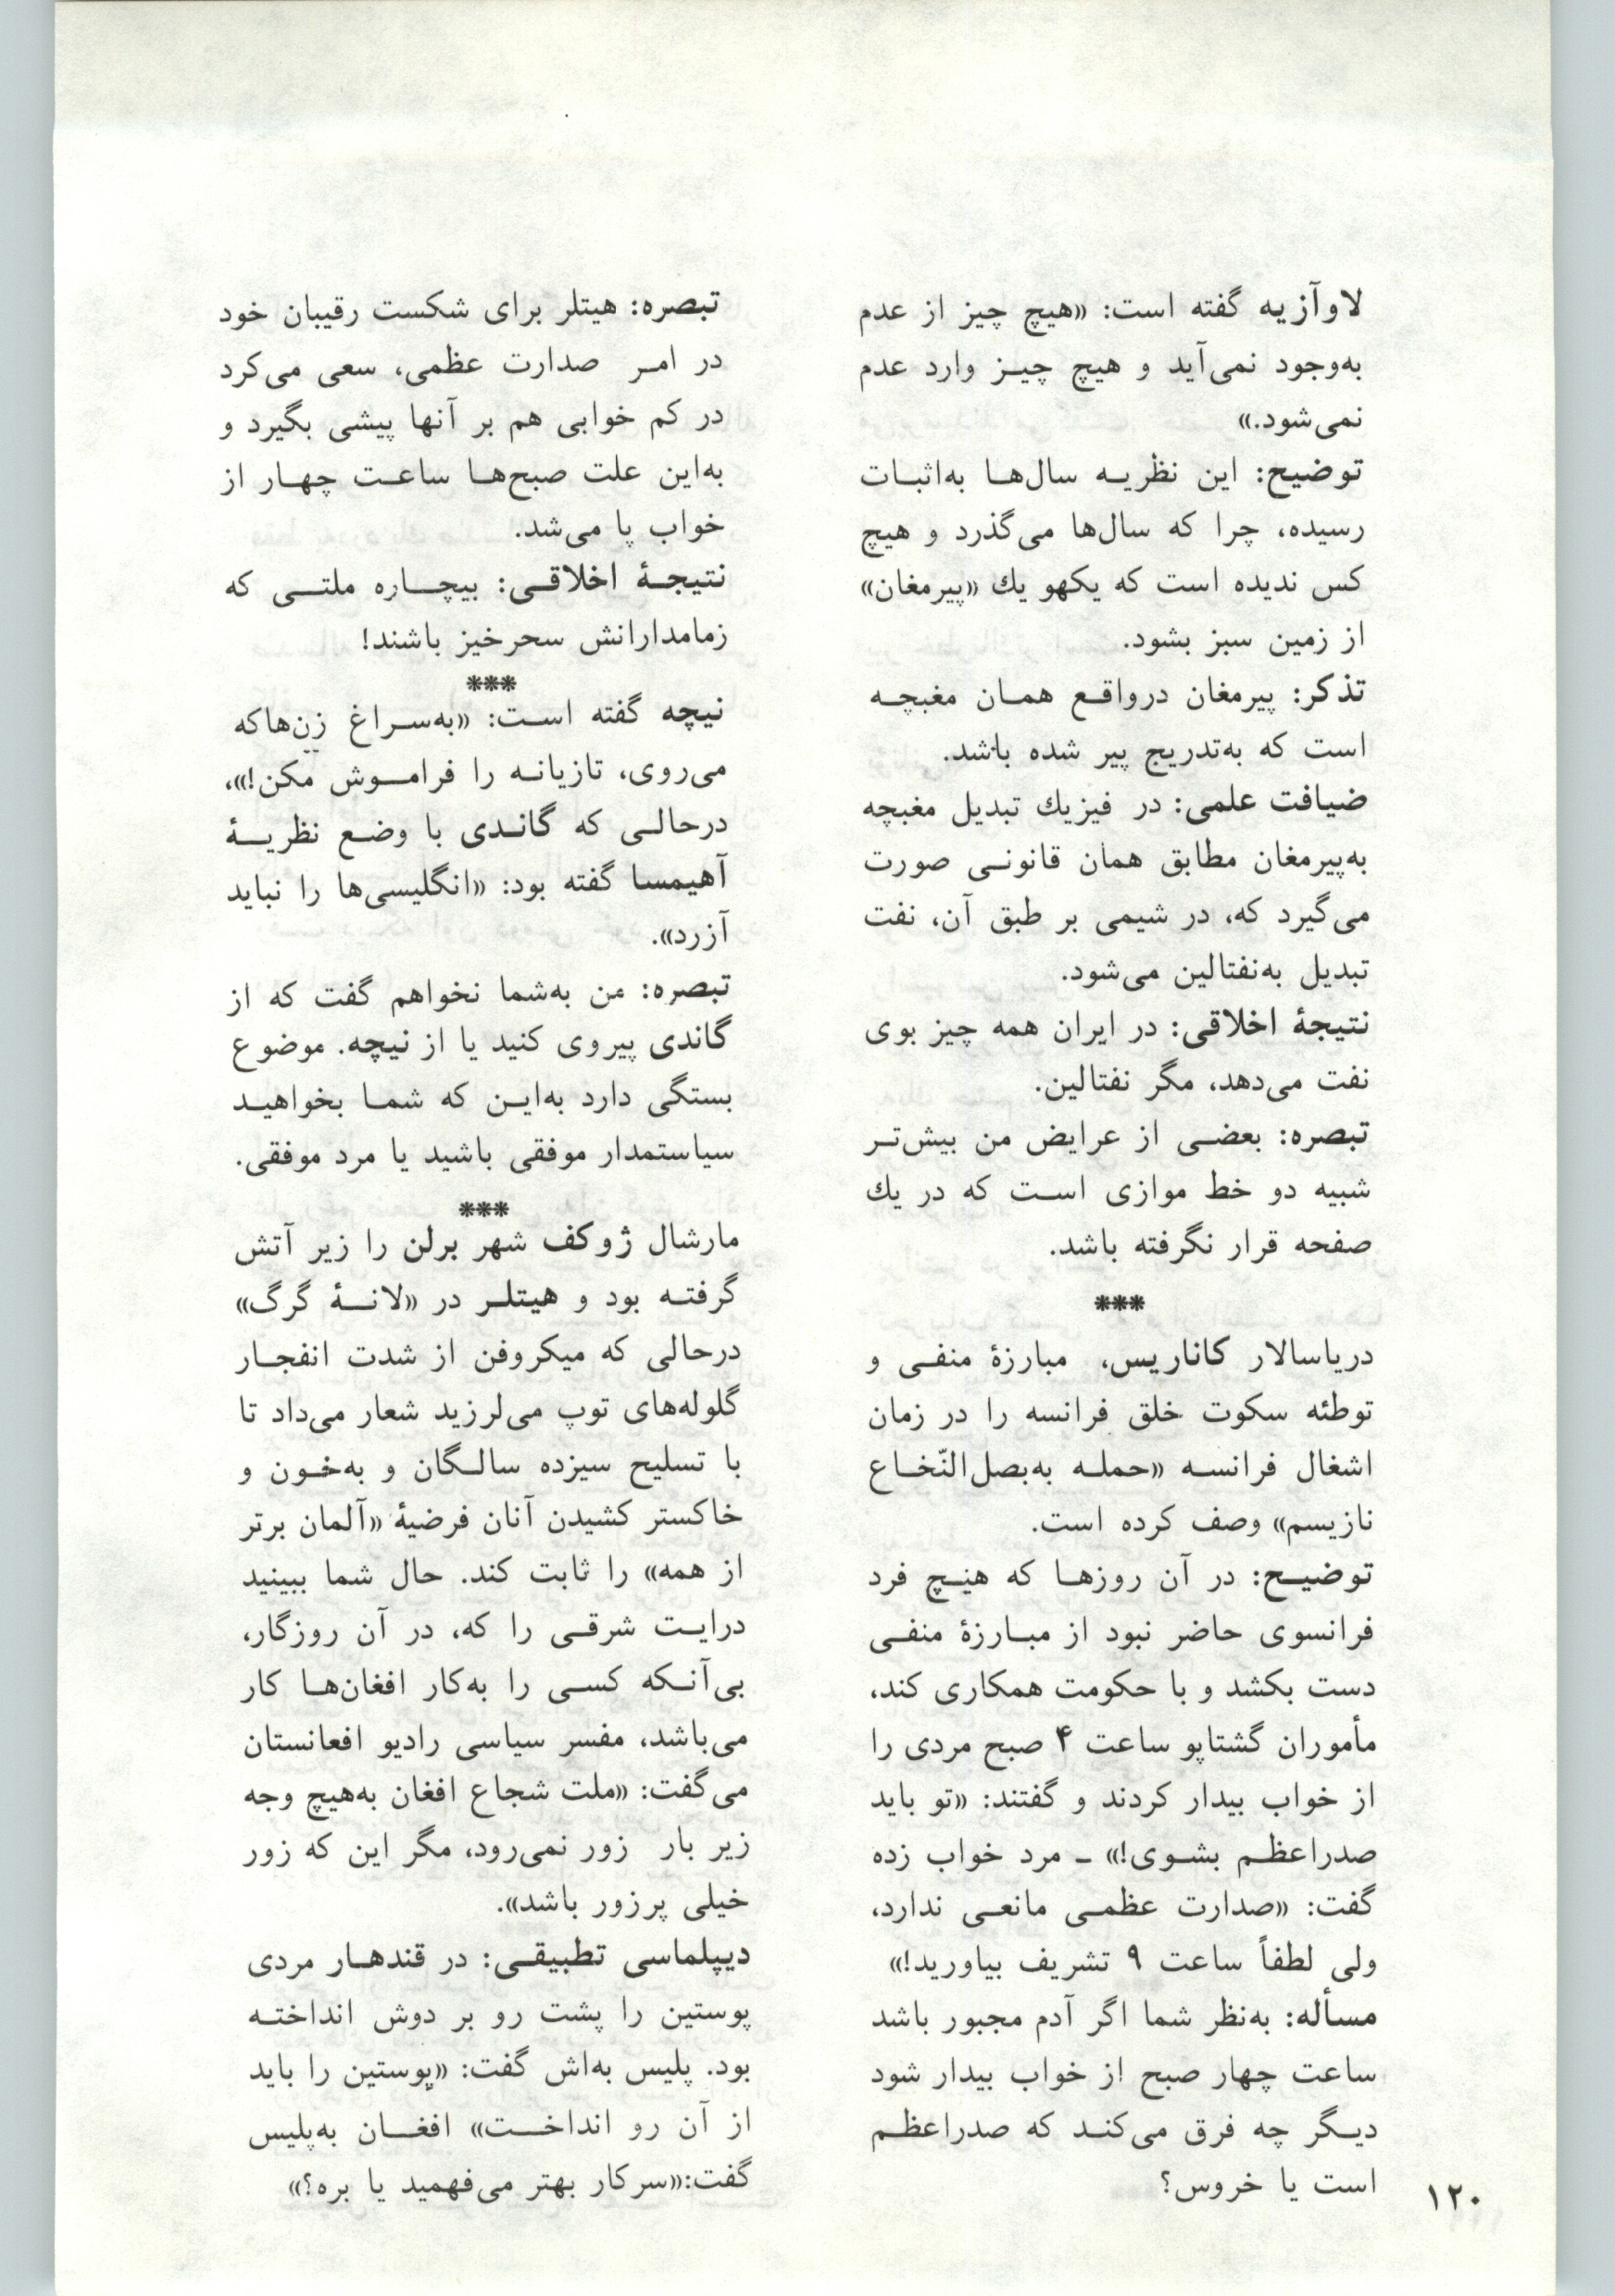 لاوآزیه گفته است: «هیچ چیز از عدم
به‌وجود نمی‌آید و هیچ چیـز وارد عدم
نمی‌شود.»
توضیح: این نظریـه سال‌هـا به‌اثبـات
رسیده، چرا که سال‌ها می‌گذرد و هیچ
کس ندیده است که یکهو یك «پیرمغان»
از زمین سبز بشود.
تذکر: پیرمغان درواقـع همـان مغبچـه
است که به‌تدریج پیر شده باشد.
ضیافت علمی: در فیزیك تبدیل مغبچه
به‌پیرمغان مطابق همان قانونـی صورت
می‌گیرد که، در شیمی بر طبق آن، نفت
تبدیل به‌نفتالین می‌شود.
نتیجهٔ اخلاقی: در ایران همه چیز بوی
نفت می‌دهد، مگر نفتالین.
تبصره: بعضـی از عرایض من بیش‌تـر
شبیه دو خط موازی اسـت که در یك
صفحه قرار نگرفته باشد.
***
دریاسالار کاناریس، مبارزهٔ منفـی و
توطئه سکوت خلق فرانسه را در زمان
اشغال فرانسـه «حملـه به‌بصل‌النّخـاع
نازیسم» وصف کرده است.
توضیـح: در آن روزهـا که هیـچ فرد
فرانسوی حاضر نبود از مبـارزهٔ منفـی
دست بکشد و با حکومت همکاری کند،
مأموران گشتاپو ساعت ۴ صبح مردی را
از خواب بیدار کردند و گفتند: «تو باید
صدراعظـم بشـوی!» ـ مرد خواب زده
گفت: «صدارت عظمـی مانعـی ندارد،
ولی لطفاً ساعت ۹ تشریف بیاورید!»
مسأله: به‌نظر شما اگر آدم مجبور باشد
ساعت چهار صبح از خواب بیدار شود
دیـگر چه فرق می‌کنـد که صدراعظـم
است یا خروس؟
تبصره: هیتلر برای شکست رقیبان خود
در امـر صدارت عظمی، سعی می‌کرد
در کم خوابی هم بر آنها پیشی بگیرد و
به‌این علت صبح‌هـا ساعـت چهـار از
خواب پا می‌شد.
نتیجـهٔ اخلاقـی: بیچـاره ملتـی که
زمامدارانش سحرخیز باشند!
***
نیچه گفته اسـت: «به‌سـراغ زن‌هاکه
می‌روی، تازیانـه را فرامـوش مکن!»،
درحالـی که گانـدی با وضـع نظریـهٔ
آهیمسا گفته بود: «انگلیسی‌ها را نباید
آزرد».
تبصره: من به‌شما نخواهم گفت که از
گاندی پیروی کنید یا از نیچه. موضوع
بستگی دارد به‌ایـن که شمـا بخواهیـد
سیاستمدار موفقی باشید یا مرد موفقی.
***
مارشال ژوکف شهر برلن را زیر آتش
گرفتـه بود و هیتلـر در «لانـهٔ گرگ»
درحالی که میکروفن از شدت انفجـار
گلوله‌های توپ می‌لرزید شعار می‌داد تا
با تسلیح سیزده سالـگان و به‌خـون و
خاکستر کشیدن آنان فرضیهٔ «آلمان برتر
از همه» را ثابت کند. حال شما ببینید
درایـت شرقـی را که، در آن روزگار،
بی‌آنـکه کسـی را به‌کار افغان‌هـا کار
می‌باشد، مفسر سیاسی رادیو افعانستان
می‌گفت: «ملت شجاع افغان به‌هیچ وجه
زیر بار زور نمی‌رود، مگر این که زور
خیلی پرزور باشد».
دیپلماسی تطبیقـی: در قندهـار مردی
پوستین را پشت رو بر دوش انداختـه
بود. پلیس به‌اش گفت: «پوستین را باید
از آن رو انداخـت» افغـان به‌پلیس
گفت:«سرکار بهتر می‌فهمید یا بره؟»
۱۲۰